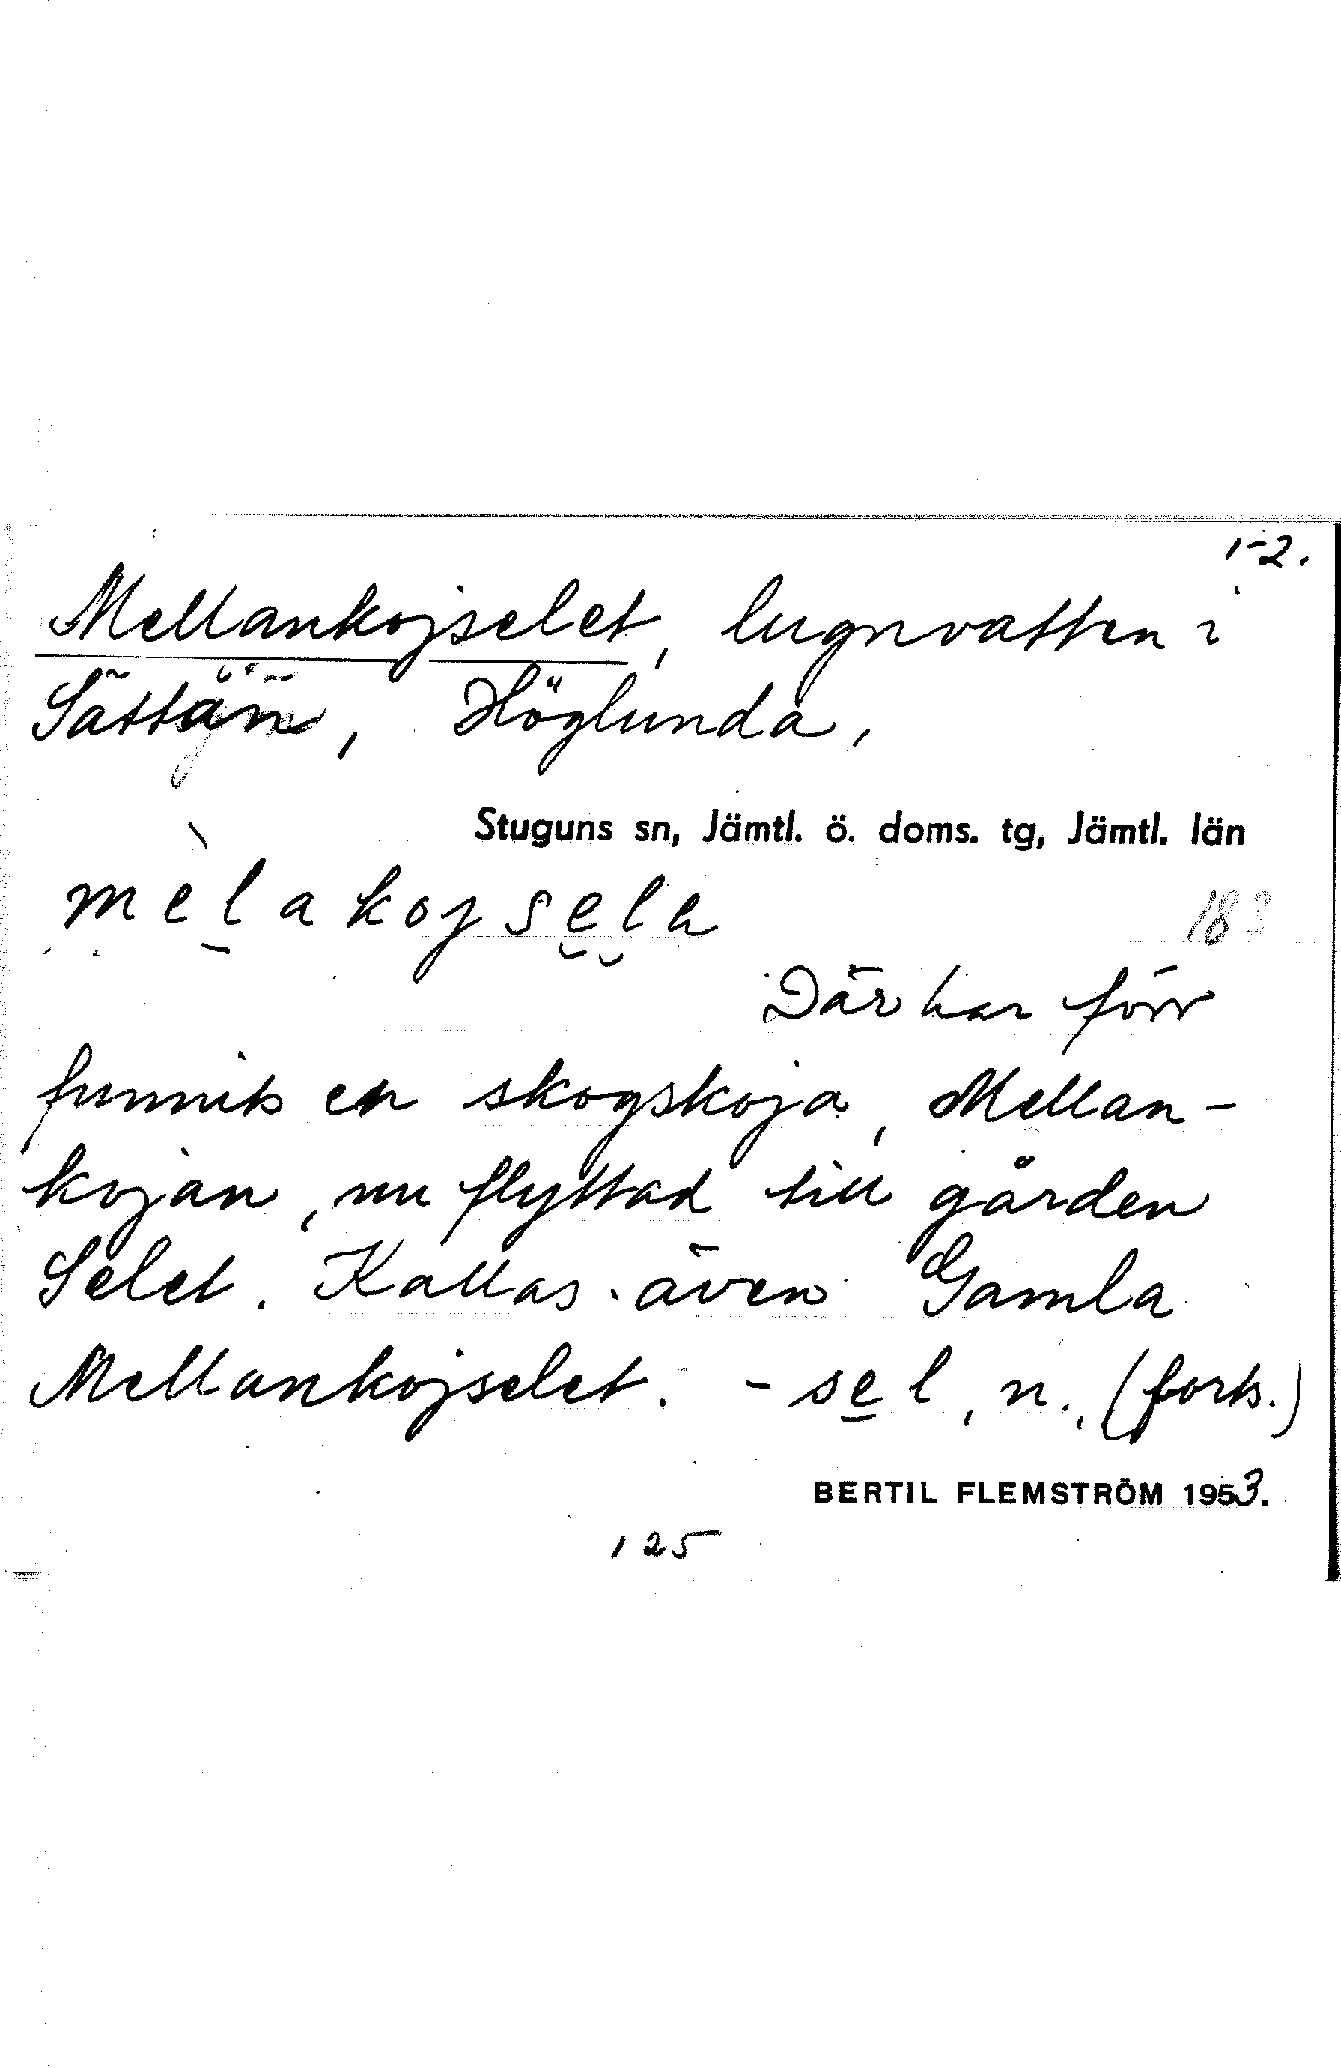 1-2.
Mellankojselet, lugnvatten i
Höglunda,
Stuguns sn, Jämtl. ö. doms. tg, Jämtl. län
mèlakojsela
Där har förr
funnits en skogskoja, Mellan-
kojan, nu flyttad till gården
Selet. Kallas även Gamla
Mellankojselet. - sel, n., (forts.)
BERTIL FLEMSTRÖM 1953.
125